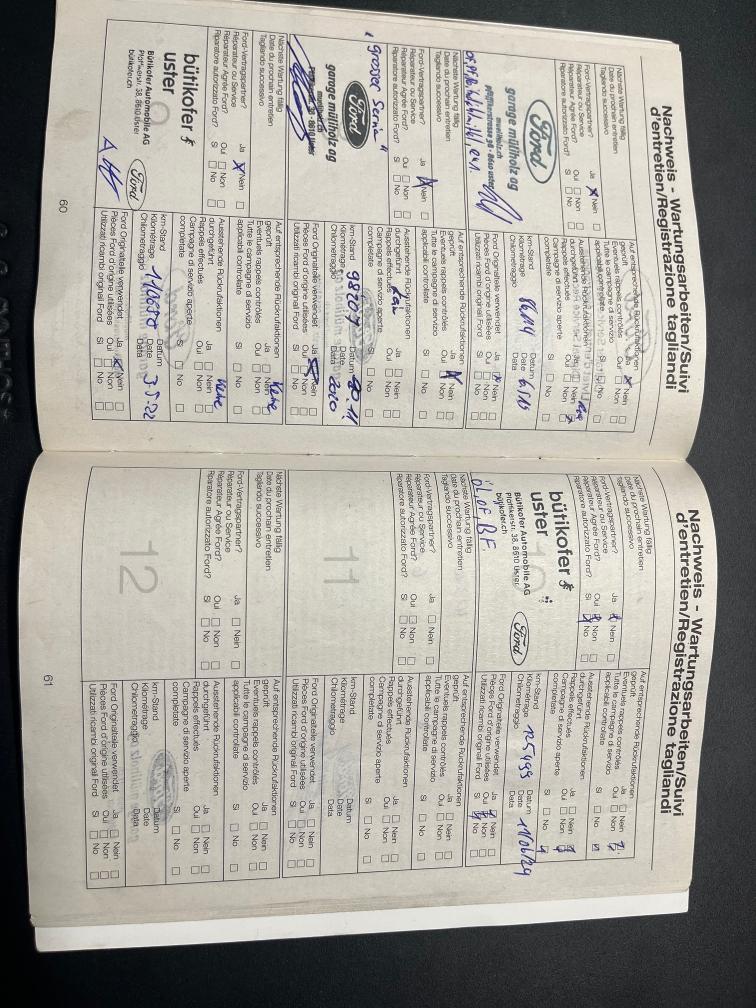 Nachweis - Wartungsarbeiten/Suivi
d'entretien/Registrazione tagliandi
Nächste Wartung fällig
Date du prochain entretien
Tagliando successivo
Ford-Vertragspartner? Ja Nein
Réparateur ou Service
Réparateur Agréé Ford? Oui Non
Riparatore autorizzato Ford? Si No
Ford
garage müllholz ag
pfäffikerstrasse 38 - 8610 uster
Auf entsprechende Rückrufaktionen
geprüft Ja Nein
Eventuels rappels contrôlés Oui Non
Tutte le campagne di servizio
applicabili controllate Si No
Ausstehende Rückrufaktionen
durchgeführt Ja Nein
Rappels effectués Oui Non
Campagne di servizio aperte
completate Si No
km-Stand Datum
Kilométrage Date
Chilometraggio Data
Ford Originalteile verwendet Ja Nein
Pièces Ford d'origine utilisées Oui Non
Utilizzati ricambi original Ford Si No
Nächste Wartung fällig
Date du prochain entretien
Tagliando successivo
Ford-Vertragspartner? Ja Nein
Réparateur ou Service
Réparateur Agréé Ford? Oui Non
Riparatore autorizzato Ford? Si No
"grosser Service"
Ford
garage müllholz ag
Auf entsprechende Rückrufaktionen
geprüft Ja Nein
Eventuels rappels contrôlés Oui Non
Tutte le campagne di servizio
applicabili controllate Si No
Ausstehende Rückrufaktionen
durchgeführt Ja Nein
Rappels effectués Oui Non
Campagne di servizio aperte
completate Si No
km-Stand 98207 Datum
Kilométrage Date
Chilometraggio Data 2020
Ford Originalteile verwendet Ja Nein
Pièces Ford d'origine utilisées Oui Non
Utilizzati ricambi original Ford Si No
Nächste Wartung fällig
Date du prochain entretien
Tagliando successivo
Ford-Vertragspartner? Ja Nein
Réparateur ou Service
Réparateur Agréé Ford? Oui Non
Riparatore autorizzato Ford? Si No
bütikofer
uster
Bütikofer Automobile AG
Pfäffikerstr. 38, 8610 Uster
bütikofer.ch
Ford
Auf entsprechende Rückrufaktionen
geprüft Ja Nein
Eventuels rappels contrôlés Oui Non
Tutte le campagne di servizio
applicabili controllate Si No
Keine
Ausstehende Rückrufaktionen
durchgeführt Ja Nein
Rappels effectués Oui Non
Campagne di servizio aperte
completate Si No
Keine
km-Stand Datum
Kilométrage Date
Chilometraggio Data
Ford Originalteile verwendet Ja Nein
Pièces Ford d'origine utilisées Oui Non
Utilizzati ricambi original Ford Si No
60
Nachweis - Wartungsarbeiten/Suivi
d'entretien/Registrazione tagliandi
Nächste Wartung fällig
Date du prochain entretien
Tagliando successivo
Ford-Vertragspartner? Ja Nein
Réparateur ou Service
Réparateur Agréé Ford? Oui Non
Riparatore autorizzato Ford? Si No
bütikofer
uster
Bütikofer Automobile AG
Pfäffikerstr. 38, 8610 Uster
bütikofer.ch
Ford
Auf entsprechende Rückrufaktionen
geprüft Ja Nein
Eventuels rappels contrôlés Oui Non
Tutte le campagne di servizio
applicabili controllate Si No
Ausstehende Rückrufaktionen
durchgeführt Ja Nein
Rappels effectués Oui Non
Campagne di servizio aperte
completate Si No
km-Stand Datum
Kilométrage 125499 Date 11/06/24
Chilometraggio Data
Ford Originalteile verwendet Ja Nein
Pièces Ford d'origine utilisées Oui Non
Utilizzati ricambi original Ford Si No
Nächste Wartung fällig
Date du prochain entretien
Tagliando successivo
Ford-Vertragspartner? Ja Nein
Réparateur ou Service
Réparateur Agréé Ford? Oui Non
Riparatore autorizzato Ford? Si No
11
Auf entsprechende Rückrufaktionen
geprüft Ja Nein
Eventuels rappels contrôlés Oui Non
Tutte le campagne di servizio
applicabili controllate Si No
Ausstehende Rückrufaktionen
durchgeführt Ja Nein
Rappels effectués Oui Non
Campagne di servizio aperte
completate Si No
km-Stand Datum
Kilométrage Date
Chilometraggio Data
Ford Originalteile verwendet Ja Nein
Pièces Ford d'origine utilisées Oui Non
Utilizzati ricambi original Ford Si No
Nächste Wartung fällig
Date du prochain entretien
Tagliando successivo
Ford-Vertragspartner? Ja Nein
Réparateur ou Service
Réparateur Agréé Ford? Oui Non
Riparatore autorizzato Ford? Si No
12
Auf entsprechende Rückrufaktionen
geprüft Ja Nein
Eventuels rappels contrôlés Oui Non
Tutte le campagne di servizio
applicabili controllate Si No
Ausstehende Rückrufaktionen
durchgeführt Ja Nein
Rappels effectués Oui Non
Campagne di servizio aperte
completate Si No
km-Stand Datum
Kilométrage Date
Chilometraggio Data
Ford Originalteile verwendet Ja Nein
Pièces Ford d'origine utilisées Oui Non
Utilizzati ricambi original Ford Si No
61